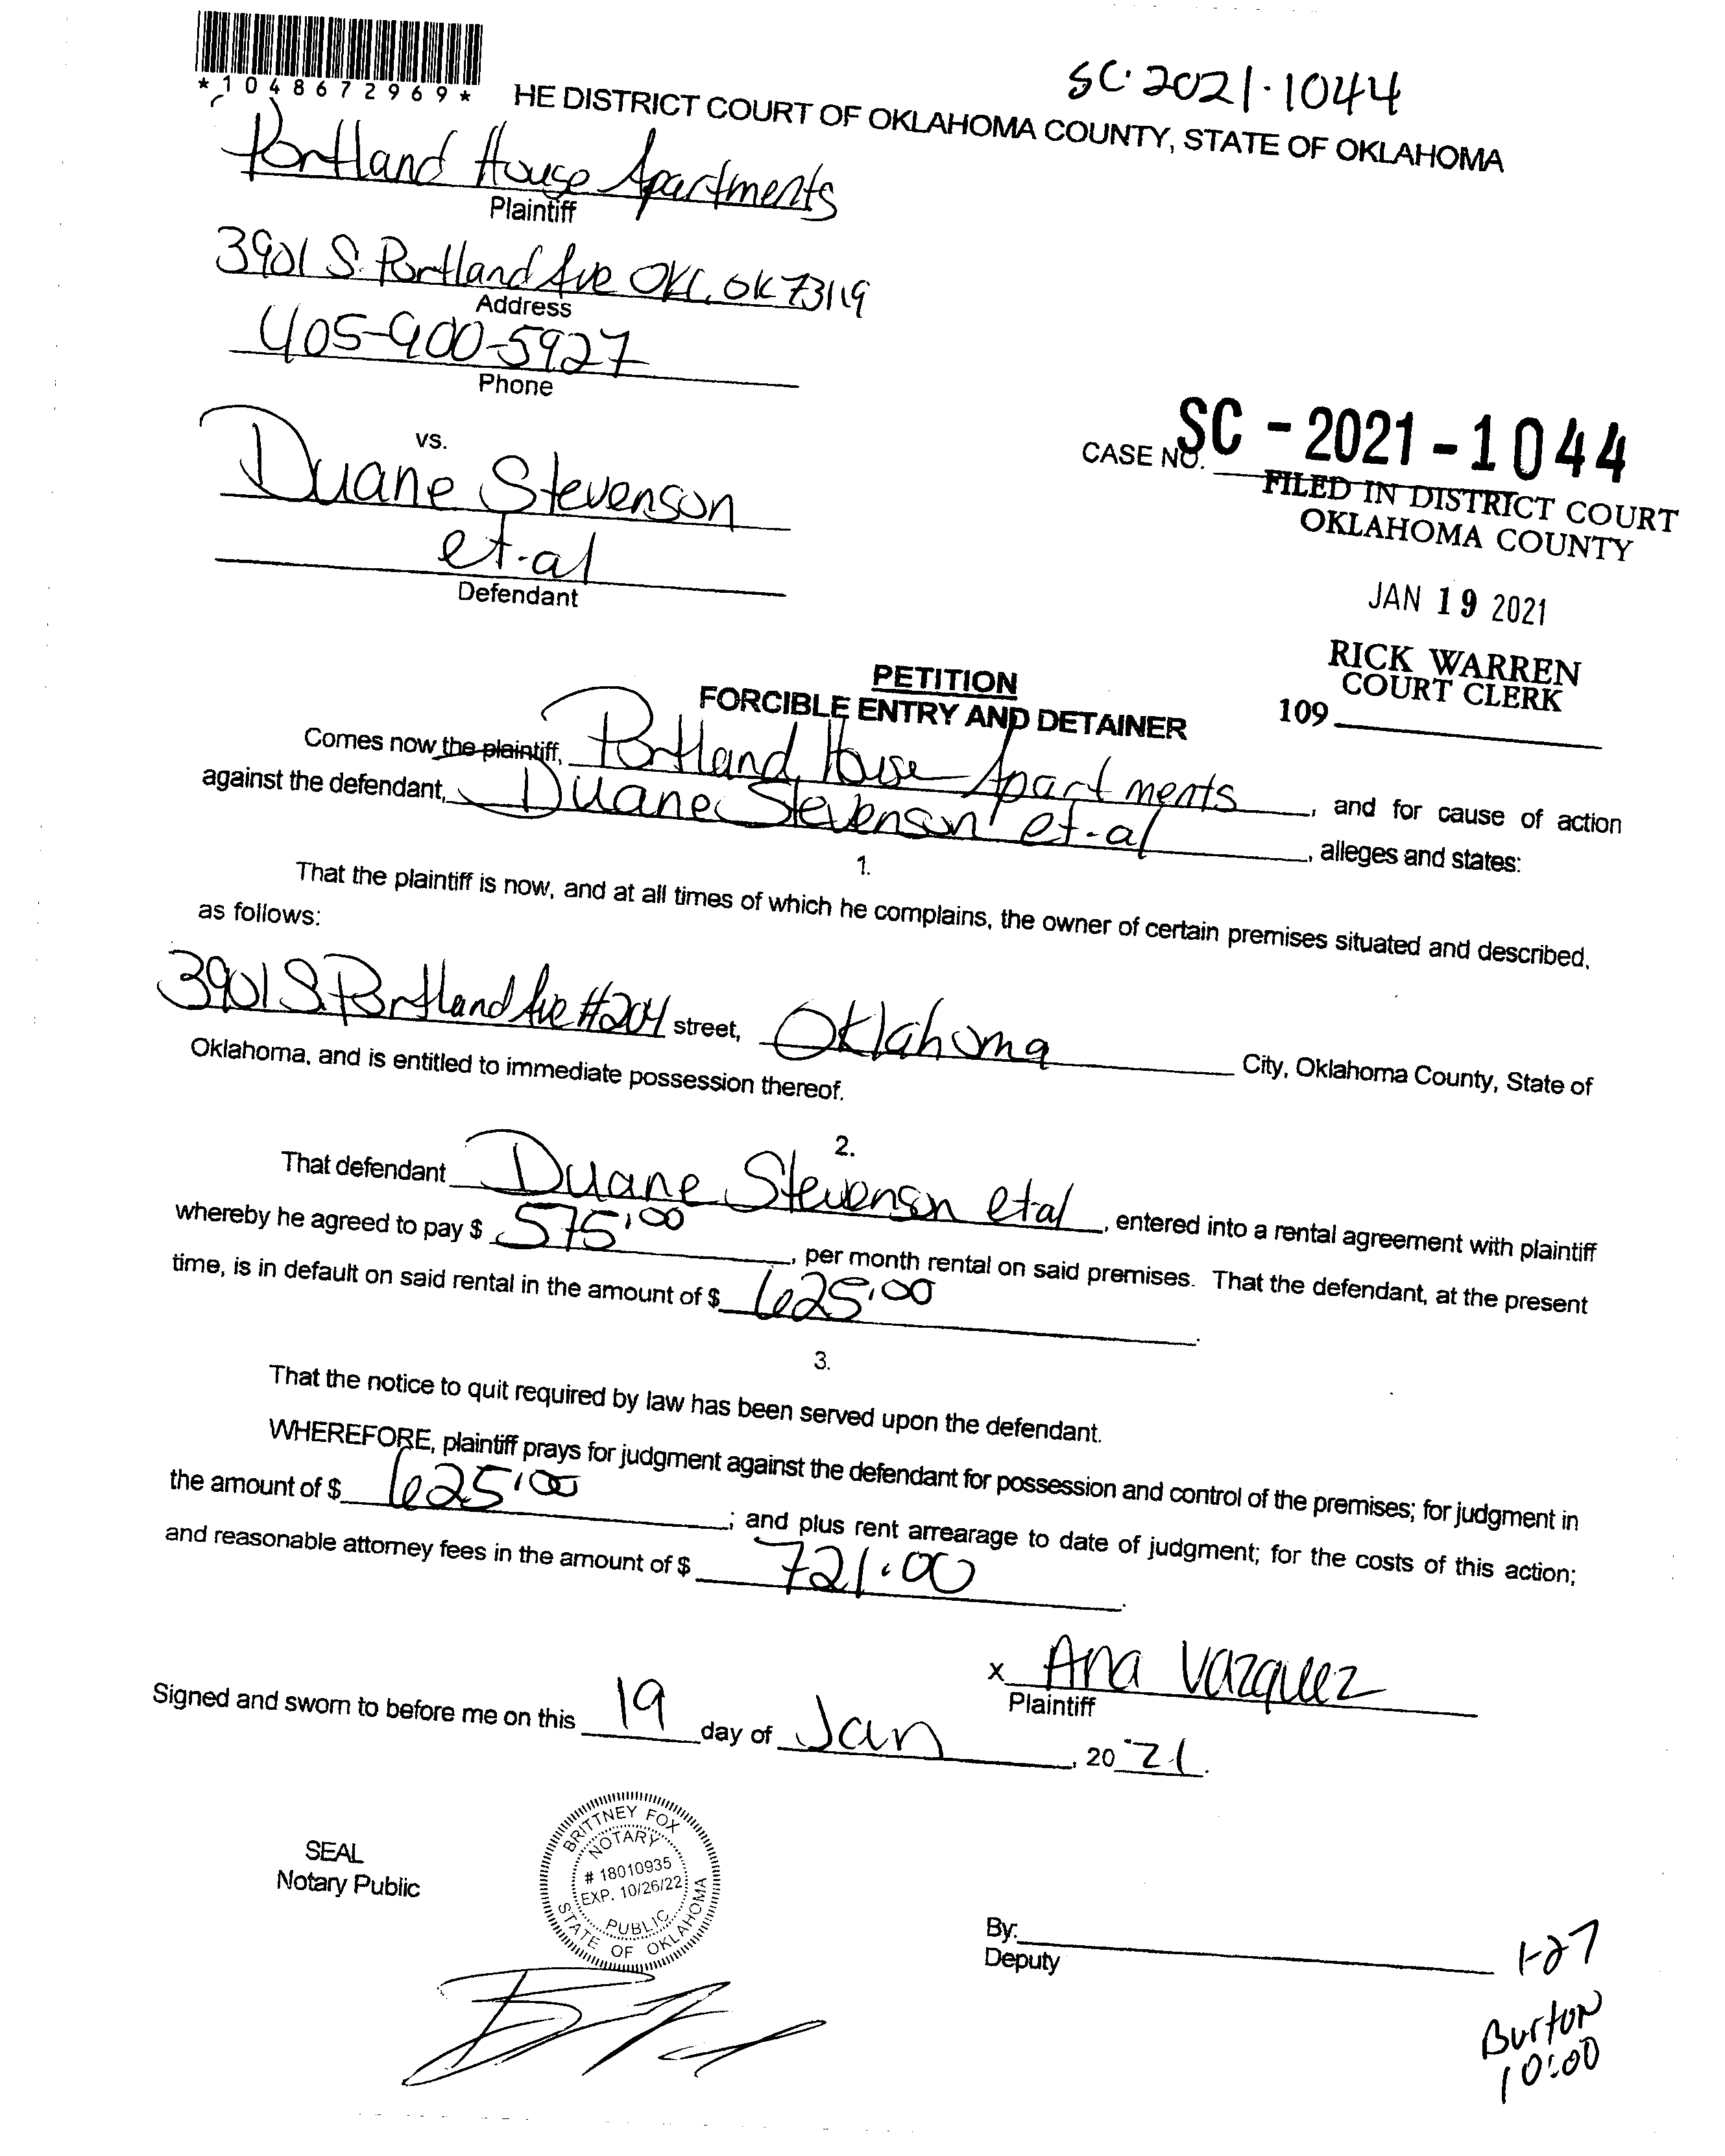 *1048672969*
SC·2021·1044
HE DISTRICT COURT OF OKLAHOMA COUNTY, STATE OF OKLAHOMA
Portland House Apartments
Plaintiff
3901 S. Portland Ave OKC, OK 73119
Address
405-900-5927
Phone
vs.
Duane Stevenson
et-al
Defendant
CASE NO. SC-2021-1044
FILED IN DISTRICT COURT
OKLAHOMA COUNTY
JAN 19 2021
RICK WARREN
COURT CLERK
109
PETITION
FORCIBLE ENTRY AND DETAINER
Comes now the plaintiff, Portland House Apartments, and for cause of action
against the defendant, Duane Stevenson et-al, alleges and states:
1.
That the plaintiff is now, and at all times of which he complains, the owner of certain premises situated and described,
as follows:
3901 S. Portland Ave #204 street, Oklahoma City, Oklahoma County, State of
Oklahoma, and is entitled to immediate possession thereof.
2.
That defendant Duane Stevenson etal, entered into a rental agreement with plaintiff
whereby he agreed to pay $ 575.00, per month rental on said premises. That the defendant, at the present
time, is in default on said rental in the amount of $ 625.00.
3.
That the notice to quit required by law has been served upon the defendant.
WHEREFORE, plaintiff prays for judgment against the defendant for possession and control of the premises; for judgment in
the amount of $ 625.00; and plus rent arrearage to date of judgment; for the costs of this action;
and reasonable attorney fees in the amount of $ 721.00.
x Ana Vazquez
Plaintiff
Signed and sworn to before me on this 19 day of Jan, 20 21.
SEAL
Notary Public
BRITTNEY FOX
NOTARY
# 18010935
EXP. 10/26/22
PUBLIC
STATE OF OKLAHOMA
By:
Deputy
1-27
Burton
10:00